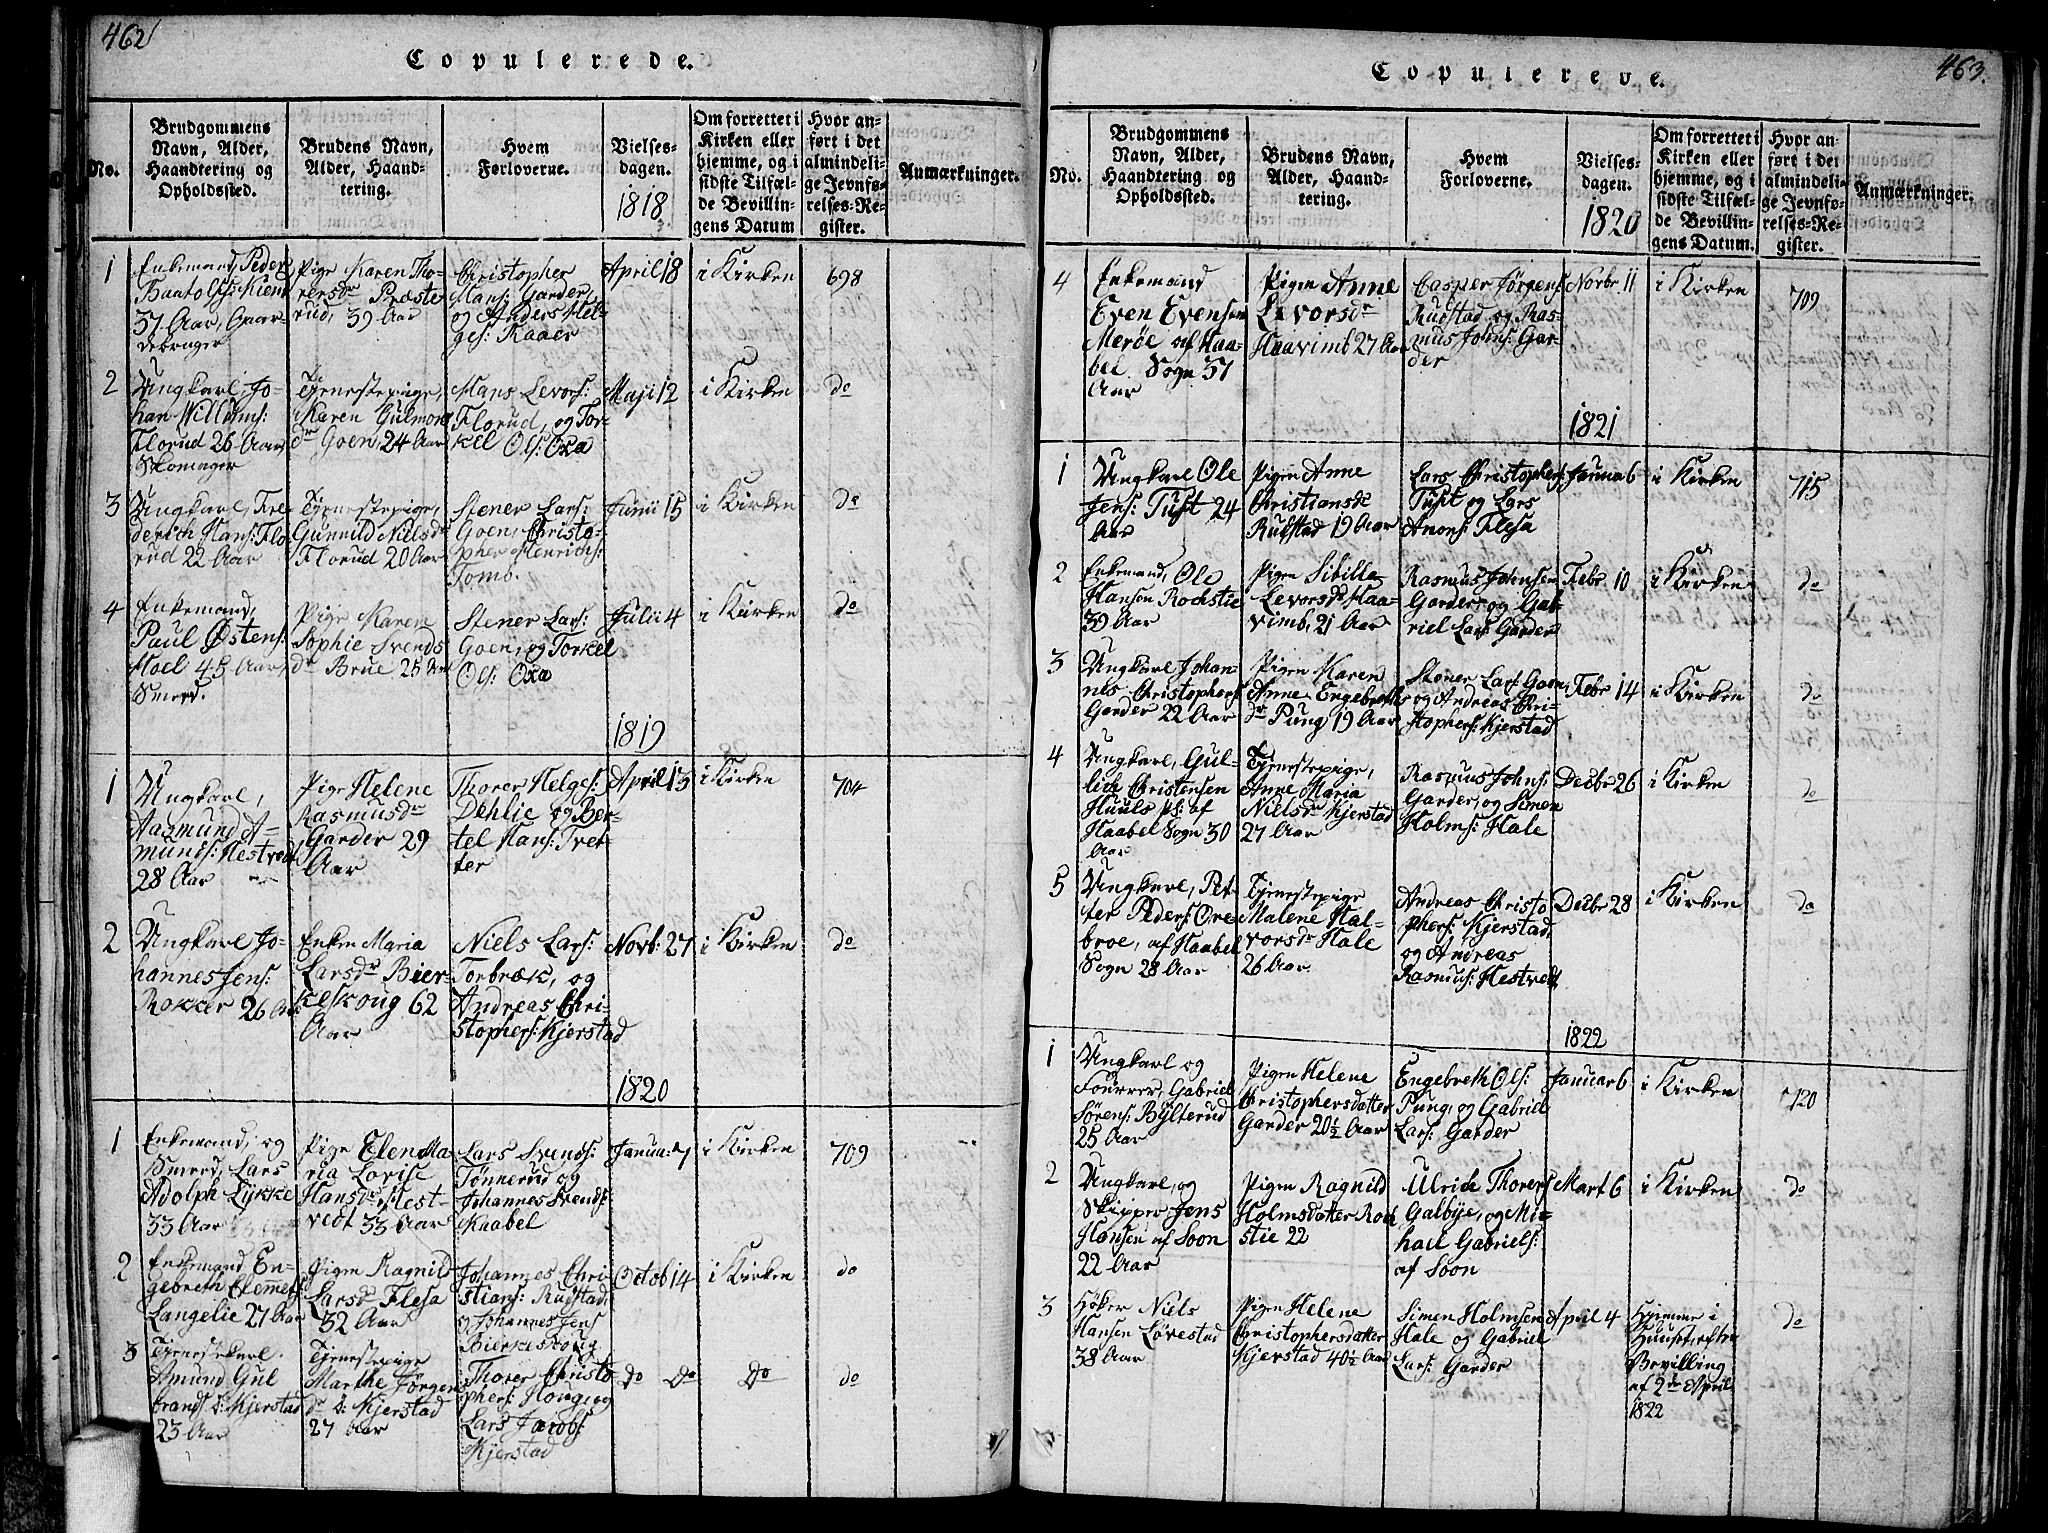 462
Copulerede.
No.
Brudgommens
Navn, Alder,
Haandtering og
Opholdssted.
Brudens Navn,
Alder, Haand-
tering.
Hvem
Forloverne.
Vielses-
dagen.
1818
Om forrettet i
Kirken eller
hjemme, og i
sidste Tilfæl-
de Bevillin-
gens Datum
Hvor an-
ført i det
almindeli-
ge Jevnfø-
relses-Re-
gister.
Anmærkninger.
1
Enkemand, Peder
37 Aar, Gaar-
debruger
Pige Karen Tho-
rersdr Præste
rud, 39 Aar
Christopher
Hans: Garder,
og Anders Hel-
ges: Raaer
April 18
i Kirken
698
2
Ungkarl, Jo-
han Willums:
Florud 26 Aar,
Skomager
Tjenestepige,
Karen Gulmon
dr Goen, 24 Aar
Hans Levors:
Florud, og Tor-
kel Ols: Oxa
Maji 12
i Kirken
do
3
Ungkarl, Fre
derich Hans: Flo-
rud 22 Aar
Tjenestepige,
Gunnild Niels dr
Florud 20 Aar
Stener Lars:
Goen, Christo-
pher Henrichs:
Tomb.
Junii 15
i Kirken
do
4
Enkemand,
Paul Østens:
Hoel 45 Aar,
Smed.
Pige Karen
Sophie Svends
dr Brue 25 Aar
Stener Lars:
Goen, og Torkel
Ols: Oxa
Julii 4
i Kirken
do
1819
1
Ungkarl,
Aazmund A-
munds: Hestvedt
28 Aar
Pige Helene
Rasmusdr
Garder 29
Aar
Thorer Helges:
Dehlie og Ber-
tel Hans: Tvet-
ter
April 13
i Kirken
704
2
Ungkarl Jo-
hannes Jens:
Rokker 26 Aar
Enken Maria
Larsdr Bier-
keskoug 62
Aar
Niels Lars:
Torbræk, og
Andreas Chri-
stophers: Kjerstad
Novb: 27
i Kirken
do
1820
1
Enkemand, og
Smed, Lars
Adolph Lykke
33 Aar
Pige Elen Ma
ria Lovise
Hansdr Hest-
vedt 33 Aar
Lars Svends:
Tønnerud og
Johannes Svends:
Kaabel
Janua: 7
i Kirken
709
2
Enkemand En-
gebreth Clemmets:
Langelie 27 Aar
Pigen Ragnild
Larsdr Flesa
32 Aar
Johannes Chri
stians: Rudstad,
og Johannes Jens
Bierkeskoug
Octob 14
i Kirken
do
3
Tjenestekarl.
Amund Gul
brands: Kjerstad
23 Aar
Tjenestepige
Marthe Jørgen
dr Kjerstad
27 Aar
Thorer Christo
phers: Houg, og
Lars Jacobs:
Kjerstad
Do Do
Do
do
463.
Copulerede.
No.
Brudgommens
Navn, Alder,
Haandtering og
Opholdssted.
Brudens Navn,
Alder, Haand-
tering.
Hvem
Forloverne.
Vielses-
dagen.
1820
Om forrettet i
Kirken eller
hjemme, og i
sidste Tilfæl-
de Bevillin-
gens Datum.
Hvor an-
ført i det
almindeli-
ge Jevnfø-
relses-Re-
gister.
Anmærkninger.
4
Enkemand
Even Evensen
Merøe af Haa-
bel Sogn 57
Aar
Pigen Anne
Levorsdr
Haavimb 27 Aar
Casper Jørgens:
Rudstad og Ras-
mus Johns: Gar-
der
Novbr 11
i Kirken
709
1821
1
Ungkarl Ole
Jens: Tust 24
Aar
Pigen Anne
Christiansdr
Rudstad 19 Aar
Lars Christophers:
Tust og Lars
Anons: Flesa
Janua 6
i Kirken
715
2
Enkemand, Ole
Hansen Rochstie
39 Aar
Pigen Sibilla
Levorsdr Haa-
vimb, 21 Aar
Rasmus Johnsen
Garder og Gab-
riel Lars: Garder
Febr 10
i Kirken
do
3
Ungkarl Johan-
nes Christophers:
Garder 22 Aar
Pigen Karen
Anne Engebreths
dr Pung 19 Aar
Stener Lars: Goen,
og Andreas Chri-
stophers: Kjerstad
Febr 14
i Kirken
do
4
Ungkarl, Gul-
lich Christensen
Huuls pl: af
Haabel Sogn 30
Aar
Tjenestepige,
Anne Maria
Nielsdr Kjerstad
27 Aar
Rasmus Johns:
Garder, og Simen
Holms: Hale
Decbr 26
i Kirken
do
5
Ungkarl, Pet-
ter Peders: Ore
broe, af Haabel
Sogn 28 Aar
Tjenestepige
Malene Hal-
vorsdr Hale
26 Aar
Andreas Christo
phers: Kjerstad,
og Andreas
Rasmus: Hestvedt
Decbr 28
i Kirken
do
1822
1
Ungkarl og
Fourrer, Gabriel
Sörens: Bylterud
25 Aar
Pigen Helene
Christophersdatter
Garder 20½ Aar
Engebreth Ols:
Pung, og Gabriel
Lars: Garder
Januar 6
i Kirken
720
2
Ungkarl, og
Skipper Jens
Hansen af Soon
22 Aar
Pigen Ragnild
Holmsdatter Roch
stie 22
Ulrich Thorers
Galbye, og Mi-
hael Gabriels:
af Soon
Mart 6
i Kirken
do
3
Høker Niels
Hansen Løvestad
38 Aar
Pigen Helene
Christophersdatter
Kjerstad 40½ Aar
Simen Holmsen
Hale og Gabriel
Lars: Garder
April 4
Hjemme i
Huuset efter
Bevilling
af 2den April
1822
do